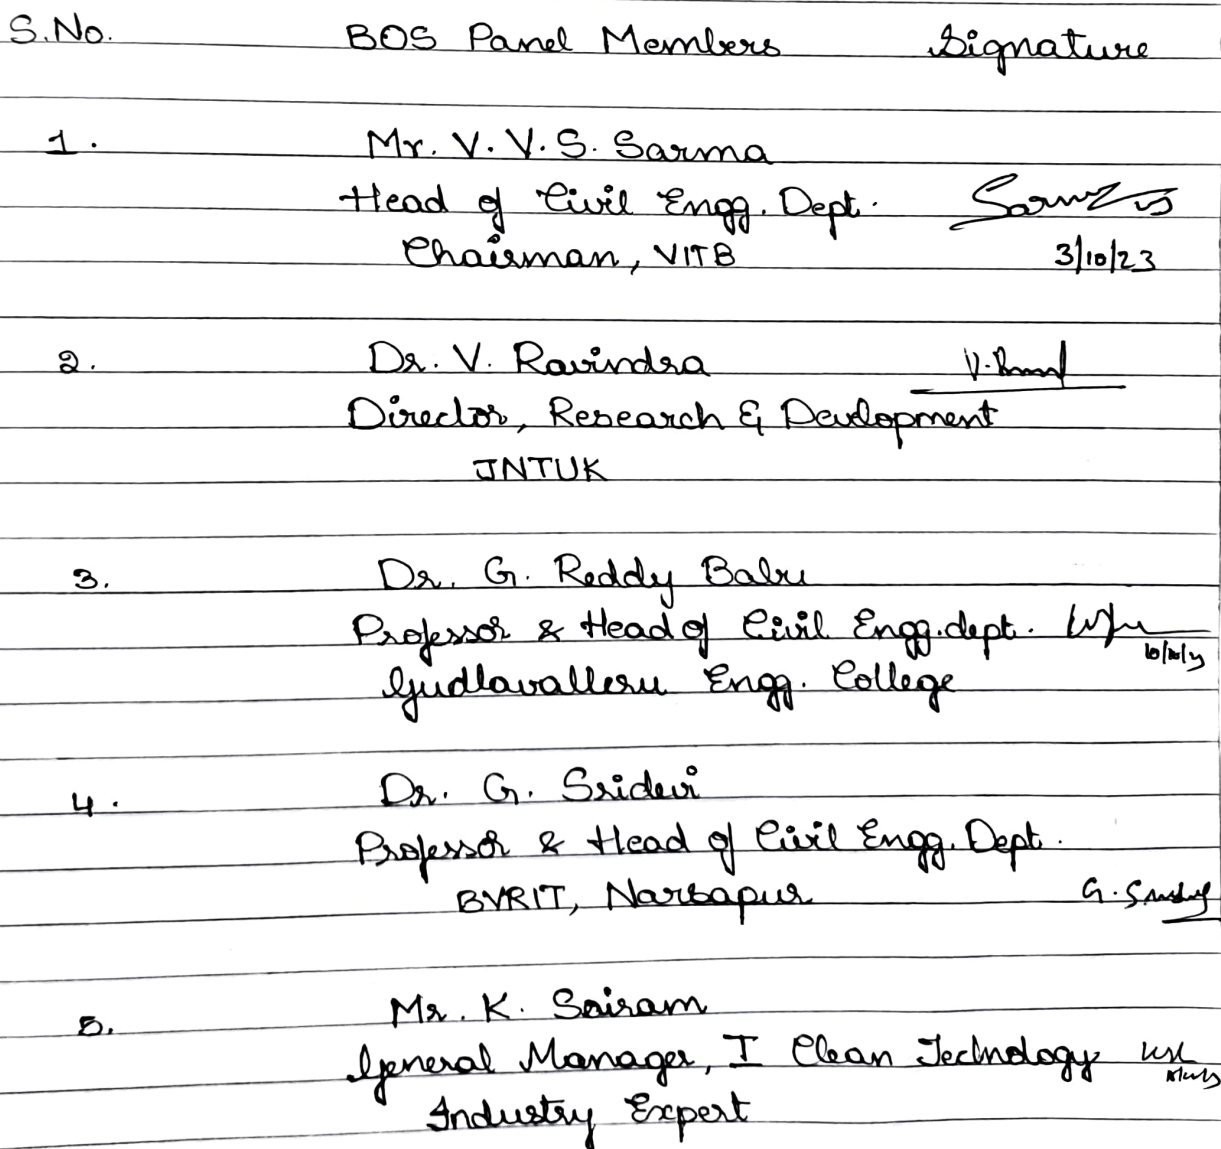 S.No. BOS Panel Members Signature
1. Mr. V. V. S. Sarma
Head of Civil Engg. Dept.
Chairman, VITB 3/10/23
2. Dr. V. Ravindra
Director, Research & Development
JNTUK
3. Dr. G. Reddy Babu
Professor & Head of Civil Engg. dept.
Gudlavalleru Engg. College
4. Dr. G. Sridevi
Professor & Head of Civil Engg. Dept.
BVRIT, Narsapur
5. Mr. K. Sairam
General Manager, I Clean Technology
Industry Expert